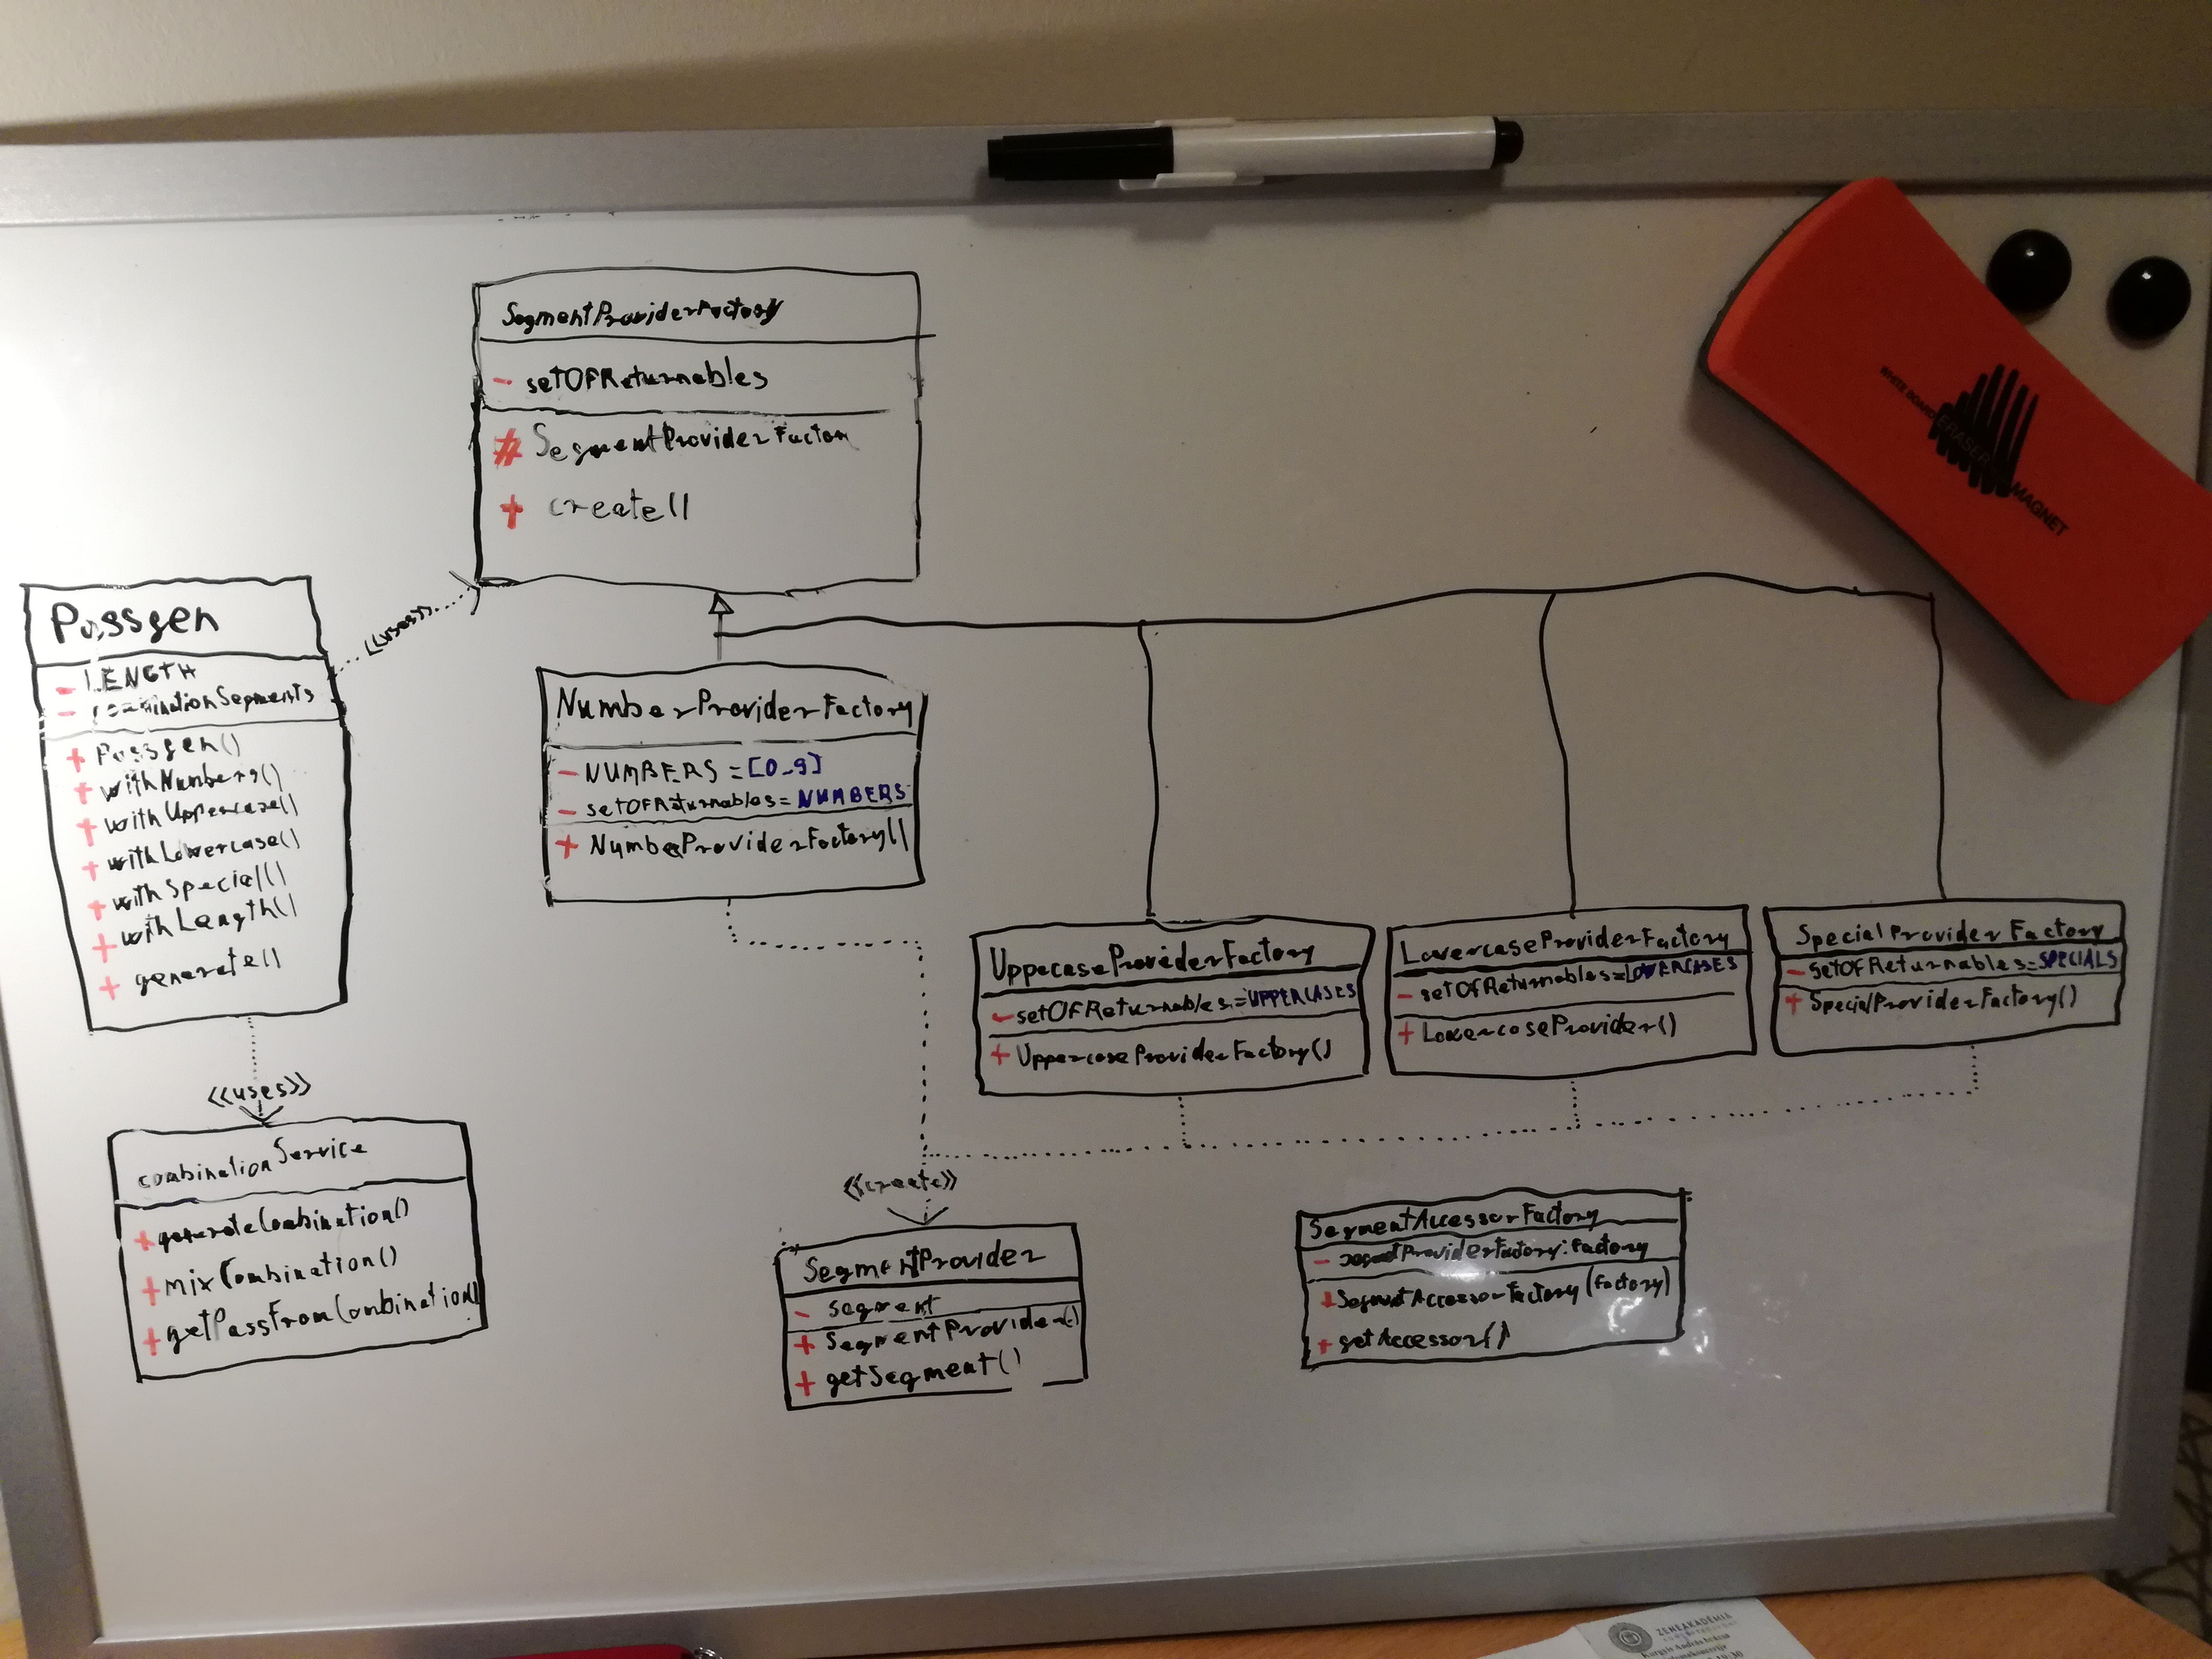 SegmentProviderFactory
- setOfReturnables
# SegmentProviderFactory
+ create()
WHITE BOARD
ERASER
MAGNET
Passgen
- LENGTH
- combinationSegments
+ Passgen()
+ withNumbers()
+ withUppercase()
+ withLowercase()
+ withSpecial()
+ withLength()
+ generate()
<<uses>>
NumberProviderFactory
- NUMBERS = [0-9]
- setOfReturnables = NUMBERS
+ NumberProviderFactory()
UppecaseProviderFactory
- setOFReturnables = UPPERCASES
+ UppercaseProviderFactory()
LowercaseProviderFactory
- setOfReturnables = LOWERCASES
+ LowercaseProvider()
SpecialProviderFactory
- setOFReturnables = SPECIALS
+ SpecialProviderFactory()
<<uses>>
combinationService
+ generateCombination()
+ mixCombination()
+ getPassFromCombination()
<<create>>
SegmentProvider
- segment
+ SegmentProvider()
+ getSegment()
SegmentAccessorFactory
- segmentProviderFactory: Factory
+ SegmentAccessorFactory(Factory)
+ getAccessor()
ZENEAKADÉMIA